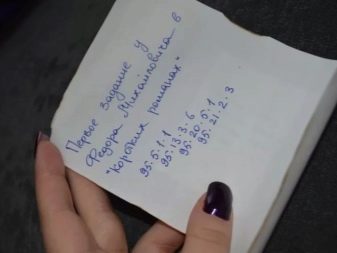 Первое задание у
Федора Михайловича в
"Коротких романах"
95:5:1:1
95:13:3:6
95:20:5:1
95:21:2:3